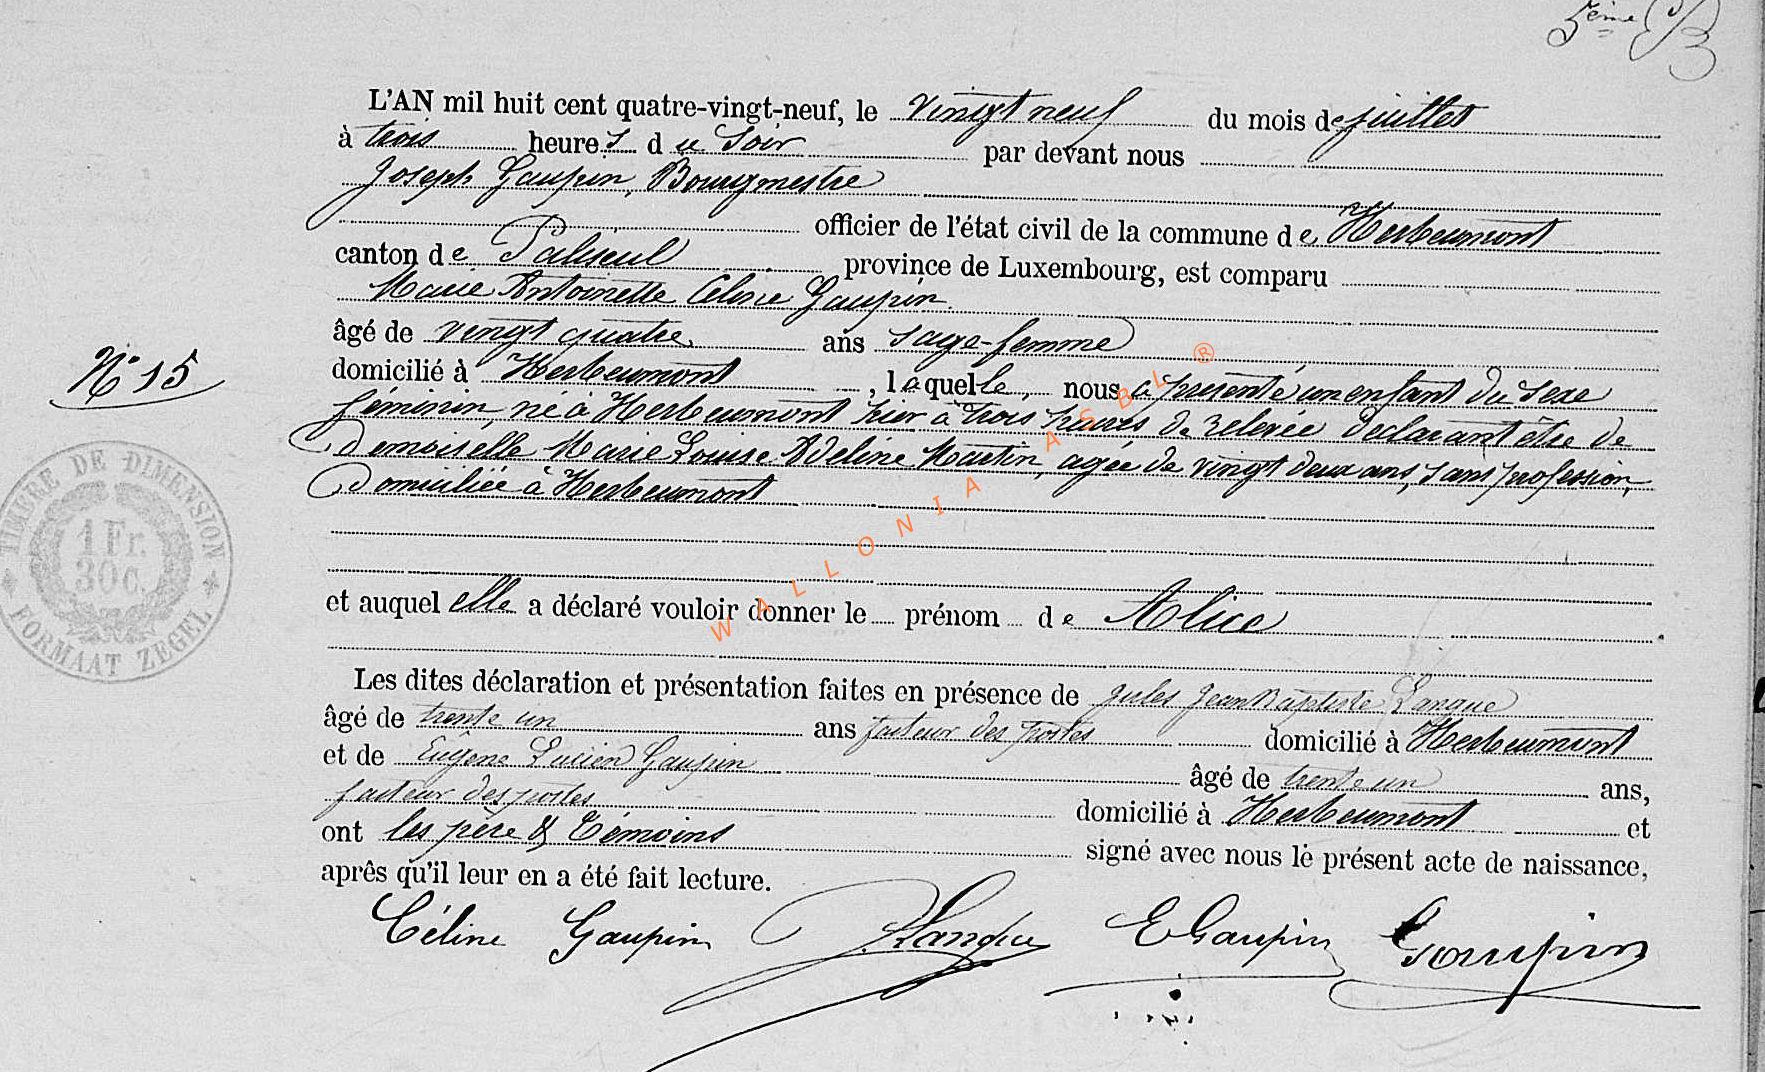 5ème
L'AN mil huit cent quatre-vingt-neuf, le vingt neuf du mois de juillet
à trois heures du Soir par devant nous
Joseph Gaupin, Bourgmestre
officier de l'état civil de la commune de Herbeumont
canton de Paliseul province de Luxembourg, est comparu
Marie Antoinette Céline Gaupin
âgé de vingt quatre ans sage-femme
domicilié à Herbeumont, laquelle, nous a présenté un enfant du sexe
N° 15
féminin, né à Herbeumont hier à trois heures de relevée déclarant être de
Demoiselle Marie Louise Adeline Martin, agée de vingt deux ans, sans profession,
Domiciliée à Herbeumont
TIMBRE DE DIMENSION
1 Fr.
30 c.
FORMAAT ZEGEL
et auquel elle a déclaré vouloir donner le prénom de Alice
Les dites déclaration et présentation faites en présence de Jules Jean Baptiste Lanque
âgé de trente un ans facteur des postes domicilié à Herbeumont
et de Eugène Lucien Gaupin âgé de trente un ans,
facteur des postes domicilié à Herbeumont et
ont les père & témoins signé avec nous le présent acte de naissance,
après qu'il leur en a été fait lecture.
Céline Gaupin Lanque E Gaupin Gaupin
WALLONIA ASBL ®